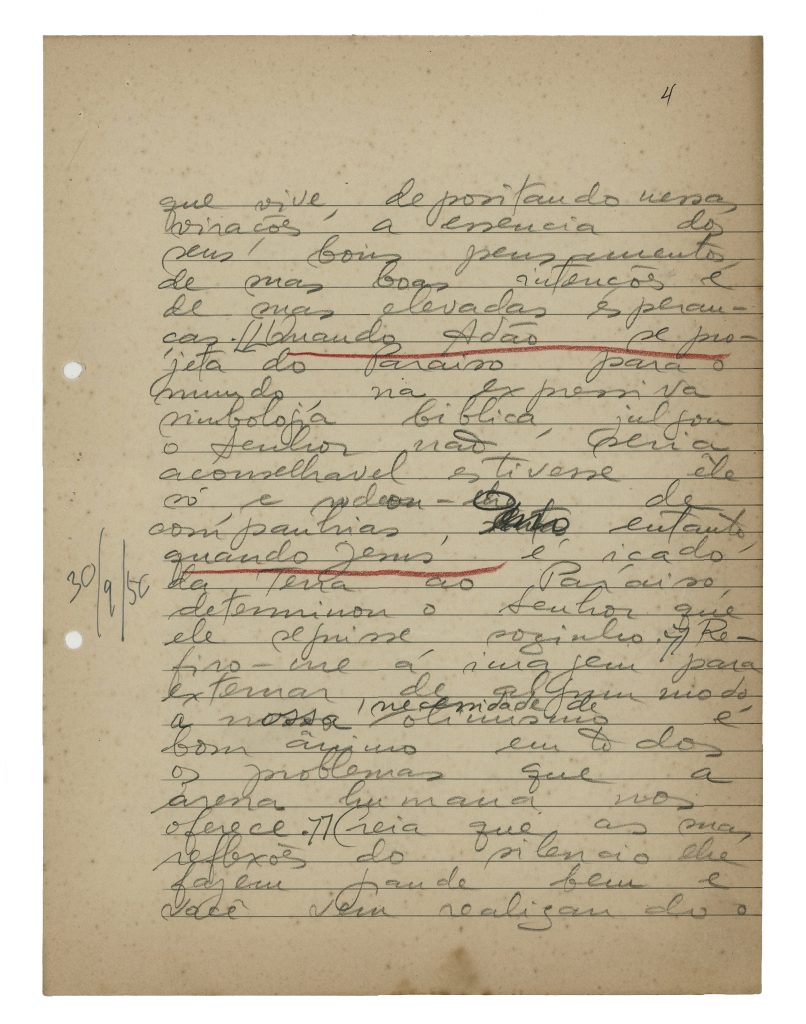 4
que vive, depositando nessas
virações, a essencia dos
seus bons pensamentos,
de suas boas intenções e
de suas elevadas esperan-
ças. // Quando Adão se pro-
jeta do Paraiso para o
mundo na expressiva
simbologia biblica, julgou
o Senhor não seria
aconselhavel estivesse êle
só e rodeou-o de
companhias, entanto,
quando Jesus, é içado
30/9/50
da Terra ao Paraiso,
determinou o Senhor que
ele seguisse sozinho. // Re-
firo-me á imagem para
externar de algum modo
a nossa necessidade de otimismo e
bom ânimo em todos
os problemas que a
arena humana nos
oferece. // Creia que as suas
reflexões do silencio lhe
fazem grande bem e
você vem realizando o